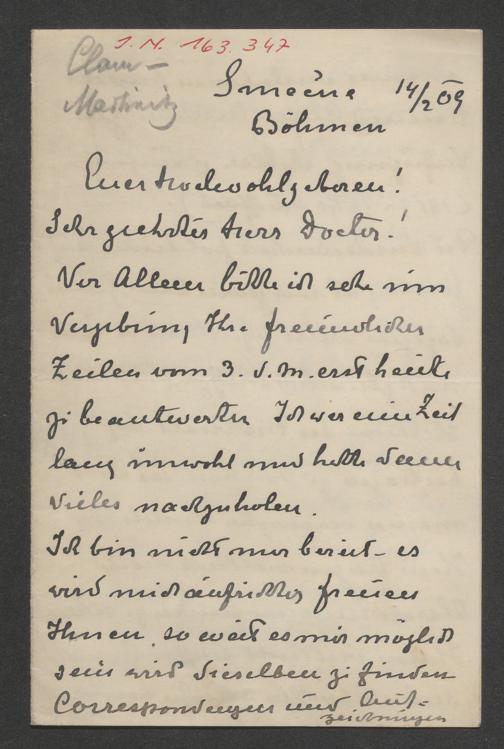 J. N. 163.347
Clam-
Martinitz
Smečna 14/2 09
Böhmen
Euer Hochwohlgeboren!
Sehr geehrter Herr Doctor!
Vor Allem bitte ich sehr um
Vergebung Ihre freundlichen
Zeilen vom 3. d. M. erst heute
zu beantworten. Ich war eine Zeit
lang unwohl und hatte dann
Vieles nachzuholen.
Ich bin nicht nur bereit – es
wird mich aufrichtig freuen
Ihnen, so weit es mir möglich
sein wird dieselben zu finden
Correspondenzen und Auf-
zeichnungen